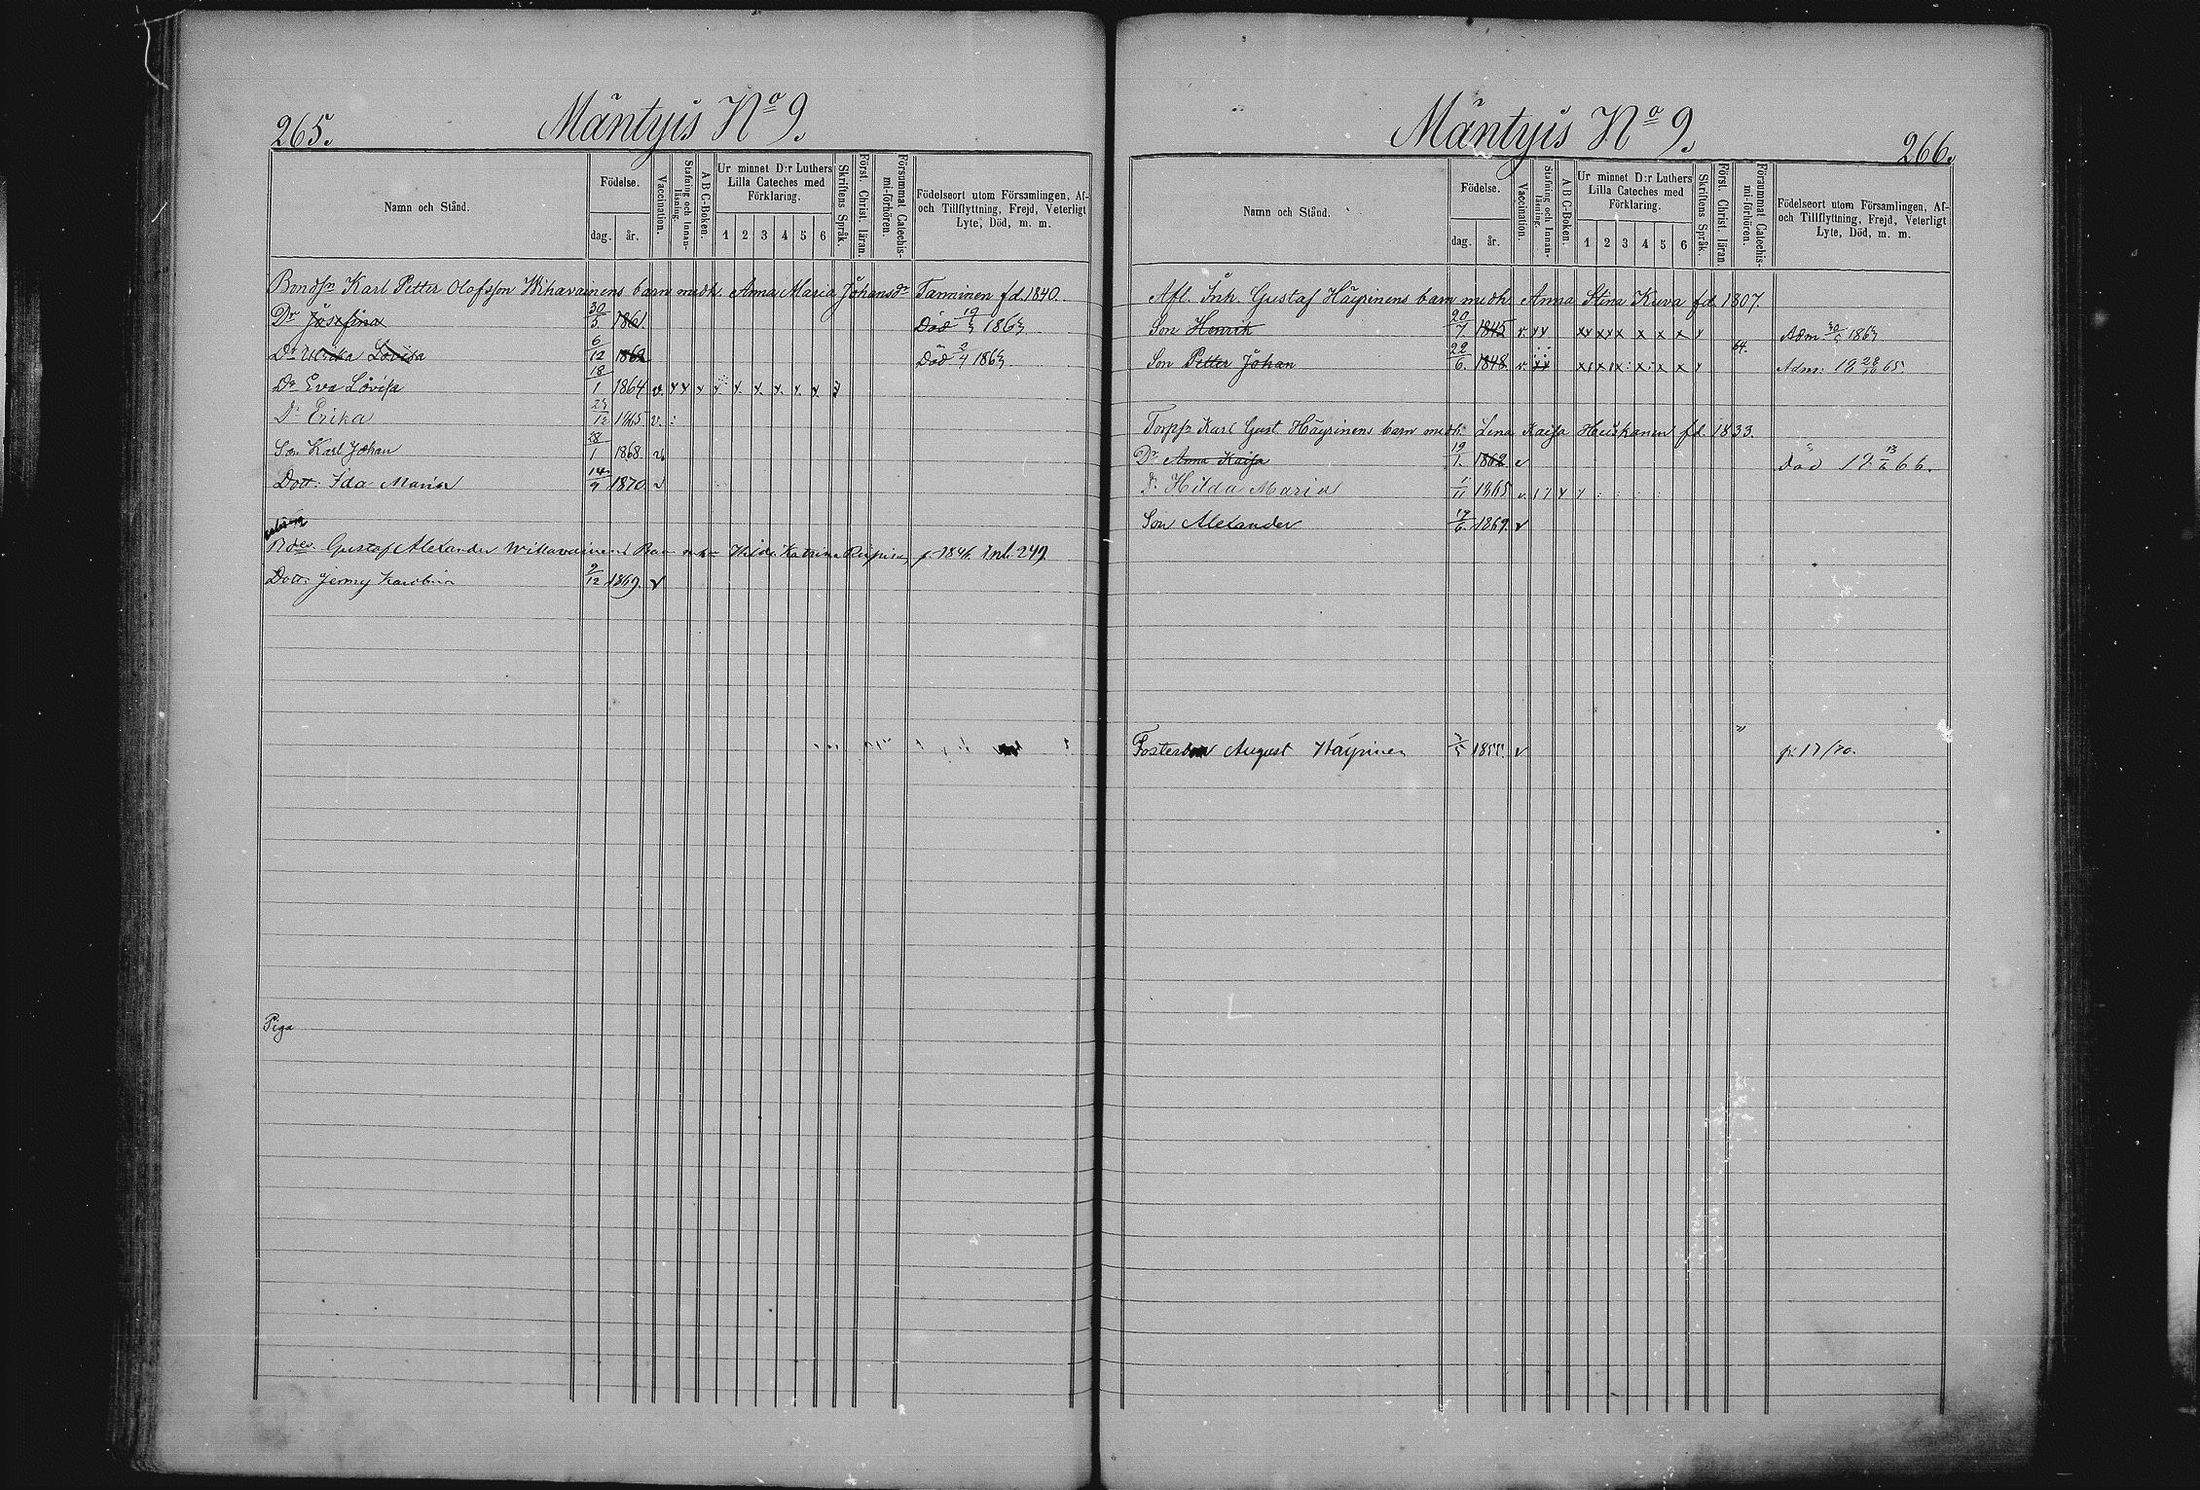 265.
Mäntyis No 9.
Namn och Stånd.
Födelse.
dag.
år.
Vaccination.
Stafning och Innan-läsning.
A B C-Boken.
Ur minnet D:r Luthers Lilla Cateches med Förklaring.
1 2 3 4 5 6
Skriftens Språk.
Först. Christ. läran.
Försummat Catechis-mi-förhören.
Födelseort utom Församlingen, Af- och Tillflyttning, Frejd, Veterligt Lyte, Död, m. m.
Karl Petter Olofsson Wihavainens barn medh. Anna Maria Johansdr Tanninen fd. 1840.
Dr Josefina 30/5 1861 Död 1863
Dr Ulrika Lovisa 6/12 1862 Död 1863
Dr Eva Lovisa 18/1 1864 v.
Dr Erika 1865 v.
Son Karl Johan 28/1 1868 v
Dott. Ida Maria 14/9 1870 v
Gustaf Alexander Hilda Katrina 1846. Inl. 249
Dott. Jenny Karolina 9/12 1869. v
Piga
Mäntyis No 9.
266.
Namn och Stånd.
Födelse.
dag.
år.
Vaccination.
Stafning och Innan-läsning.
A B C-Boken.
Ur minnet D:r Luthers Lilla Cateches med Förklaring.
1 2 3 4 5 6
Skriftens Språk.
Först. Christ. läran.
Försummat Catechis-mi-förhören.
Födelseort utom Församlingen, Af- och Tillflyttning, Frejd, Veterligt Lyte, Död, m. m.
Afl. Inh. Gustaf Häyrinens barn medh. Anna Stina Kuva fd. 1807.
Son Henrik 20/7 1845 Adm 1863
Son Petter Johan 22/6 1848 64. Adm: 65.
Karl Gust. Häyrinens barn medh. Lena Kaisa fd. 1833.
Dr Anna Kaisa 19/1 1862 v död 66.
Dr Hilda Maria 1/11 1865 v
Son Alexander 19/6 1869. v
August Häyrinen 1855. v p. 17/70.